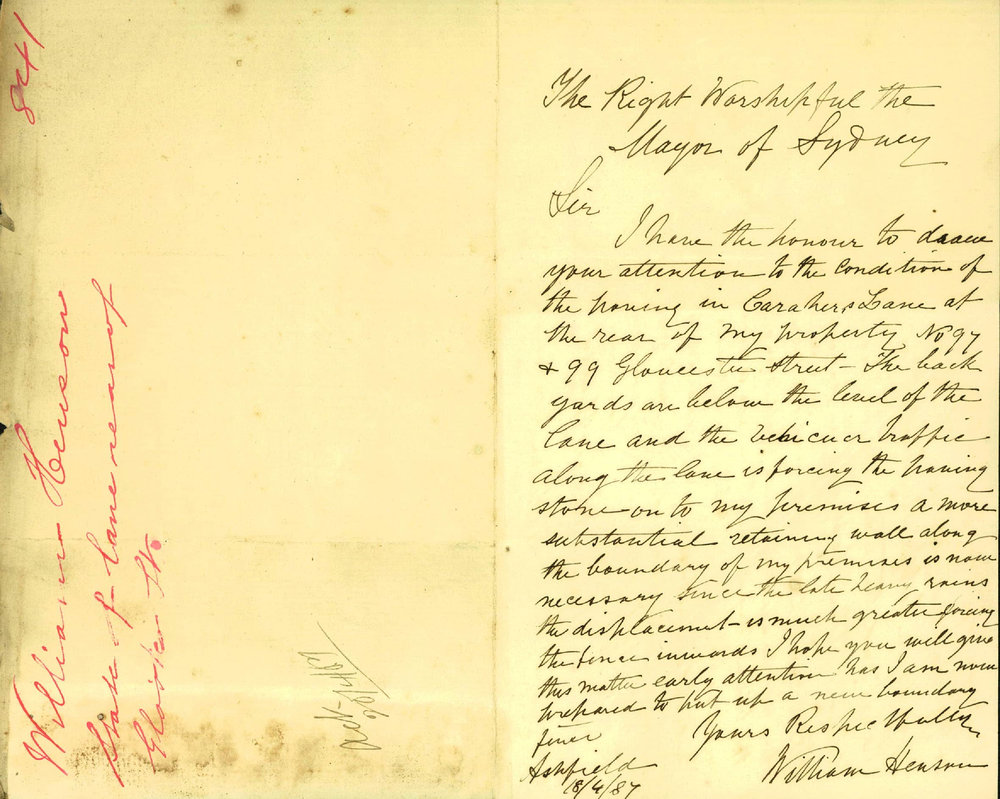 841
William Henson
State of lane rear of
Gloster St.
Ack
20/4/87
The Right Worshipful the
Mayor of Sydney
Sir
I have the honour to draw
your attention to the condition of
the paving in Carahers Lane at
the rear of my property No 97
+ 99 Gloucester Street – The back
yards are below the level of the
lane and the traffic
along the lane is forcing the paving
stone on to my premises a more
substantial retaining wall along
the boundary of my premises is now
necessary since the late heavy rains
the displacement is much greater forcing
the fence inwards I hope you will give
this matter early attention has I am now
prepared to put up a new boundary
fence
Yours Respectfully
William Henson
Ashfield
18/4/87